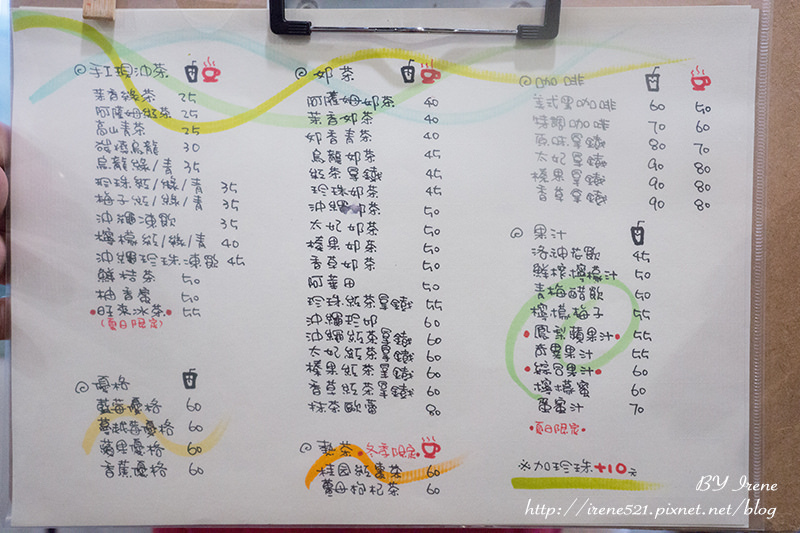 手工現沖茶
茉香綠茶 25
阿薩姆紅茶 25
高山青茶 25
烏龍 30
烏龍綠/青 35
珍珠紅/綠/青 35
梅子紅/綠/青 35
沖繩凍飲 35
檸檬紅/綠/青 40
沖繩珍珠凍飲 45
鮮桔茶 50
柚香蜜 50
旺來冰茶 50
(夏日限定)
優格
藍莓優格 60
蔓越莓優格 60
蘋果優格 60
香蕉優格 60
奶茶
阿薩姆奶茶 40
茉香奶茶 40
奶香青茶 40
烏龍奶茶 45
紅茶拿鐵 45
珍珠奶茶 45
沖繩奶茶 50
太妃奶茶 50
榛果奶茶 50
香草奶茶 50
阿華田 50
珍珠紅茶拿鐵 55
沖繩珍奶 60
沖繩紅茶拿鐵 60
太妃紅茶拿鐵 60
榛果紅茶拿鐵 60
香草紅茶拿鐵 60
抹茶歐蕾 80
熱茶 冬季限定
桂圓紅棗茶 60
薑母枸杞茶 60
咖啡
美式黑咖啡 60 50
特調咖啡 70 60
原味拿鐵 80 70
太妃拿鐵 90 80
榛果拿鐵 90 80
香草拿鐵 90 80
果汁
洛神花飲 45
鮮榨檸檬汁 50
青梅醋飲 50
檸檬梅子 55
鳳梨蘋果汁 55
百果汁 55
綜合果汁 60
檸檬蜜 60
蜜汁 70
夏日限定
※加珍珠+10元
BY Irene
http://irene521.pixnet.net/blog